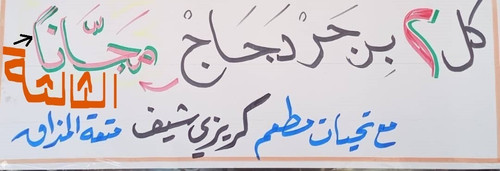 كل ٢ بِرجَرْ دَجَاجْ مَجَّاناً
الثالثة
مع تحيات مطعم كريزي شيف متعة المذاق